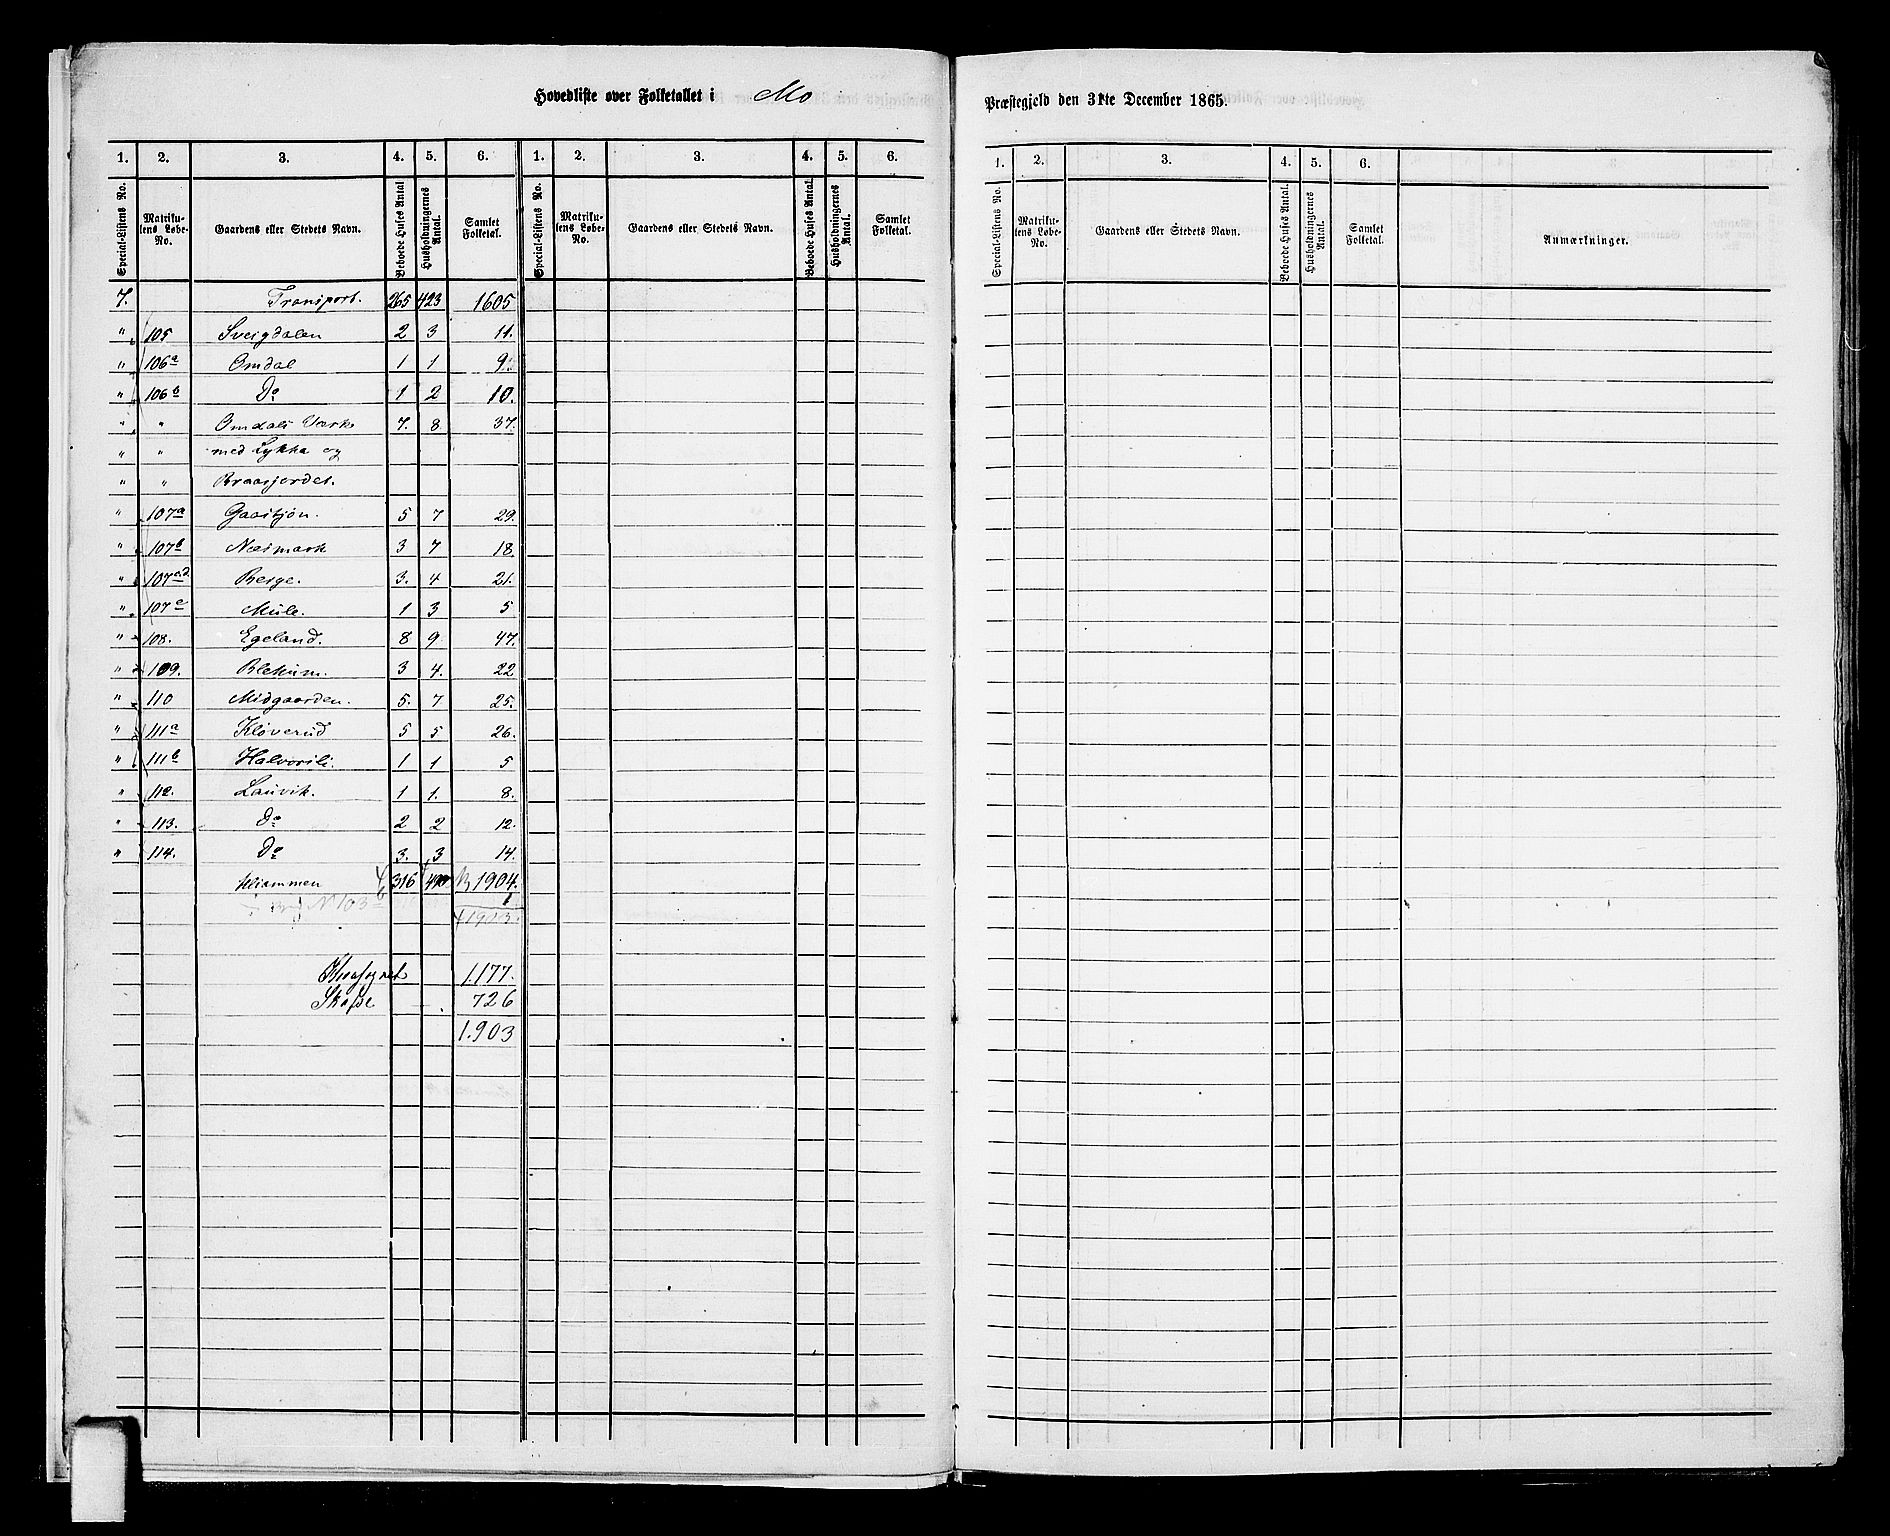 Hovedliste over Folketallet i Mo Præstegjeld den 31te December 1865.
1. 2. 3. 4. 5. 6. 1. 2. 3. 4. 5. 6. 1. 2. 3. 4. 5. 6.
Special-Listens No. Matrikulens Løbe-No. Gaardens eller Stedets Navn. Beboede Huses Antal Husholdningernes Antal. Samlet Folketal. Special-Listens No. Matrikulens Løbe-No. Gaardens eller Stedets Navn. Beboede Huses Antal. Husholdningernes Antal. Samlet Folketal. Special-Listens No. Matrikulens Løbe-No. Gaardens eller Stedets Navn. Beboede Huses Antal. Husholdningernes Antal. Samlet Folketal. Anmærkninger.
7. Transport. 265 423 1605
" 105 Sveigdalen 2 3 11.
" 106a Omdal 1 1 9.
" 106b Do 1 2 10.
" " Omdals Værk 7. 8 37.
" " med Lykkja og
" " Braasjordet.
" 107a Gaastjøn. 5 7 29.
" 107b Næsmark 3 7 18.
" 107c.d. Berge. 3. 4 21.
" 107e Mule. 1 3 5
" 108. Egeland. 8 9. 47.
" 109. Blekum. 3 4. 22
" 110 Midgaarden. 5. 7 25.
" 111a Kloverud 5 5 26.
" 111b Halvorsli. 1 1 5
" 112. Lauvik. 1 1. 8.
" 113. Do 2 2 12.
" 114. Do 3. 3 14.
316 490 1904.
No 103b 1
1903.
1.177.
Skafse 726
1.903